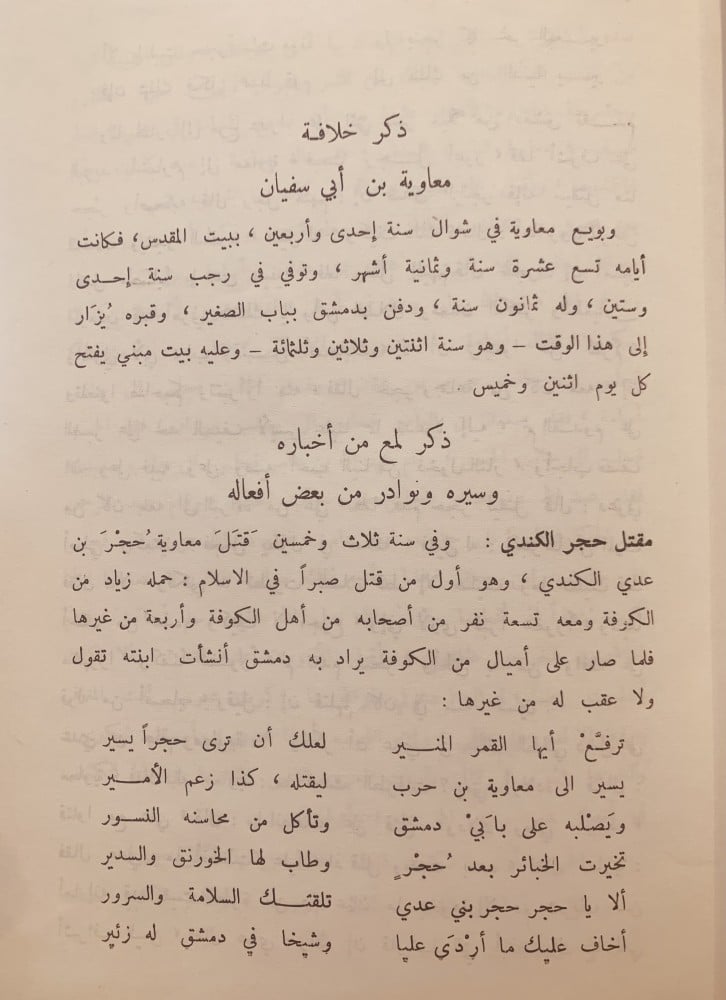 ذكر خلافة
معاوية بن أبي سفيان
وبويع معاوية في شوال سنة إحدى وأربعين ، ببيت المقدس، فكانت
أيامه تسع عشرة سنة وثمانية أشهر ، وتوفي في رجب سنة إحدى
وستين ، وله ثمانون سنة ، ودفن بدمشق بباب الصغير ، وقبره يُزَار
إلى هذا الوقت – وهو سنة اثنتين وثلاثين وثلثمائة – وعليه بيت مبني يفتح
كل يوم اثنين وخميس .
ذكر لمع من أخباره
وسيره ونوادر من بعض أفعاله
مقتل حجر الكندي : وفي سنة ثلاث وخمسين قَتَلَ معاوية حُجْرَ بن
عدي الكندي ، وهو أول من قتل صبراً في الاسلام : حمله زياد من
الكوفة ومعه تسعة نفر من أصحابه من أهل الكوفة وأربعة من غيرها
فلما صار على أميال من الكوفة يراد به دمشق أنشأت ابنته تقول
ولا عقب له من غيرها :
ترفَّعْ أيها القمر المنـــير لعلك أن ترى حجراً يسير
يسير الى معاوية بن حرب ليقتله ، كذا زعم الأمــير
ويَصْلبه على بابَيْ دمشق وتأكل من محاسنه النســور
تخيرت الخبائر بعد حُجْرٍ وطاب لها الخورنق والسدير
ألا يا حجر حجر بني عدي تلقتـــك السلامة والسرور
أخاف عليك ما أرْدَى عليا وشيخا في دمشق له زئير